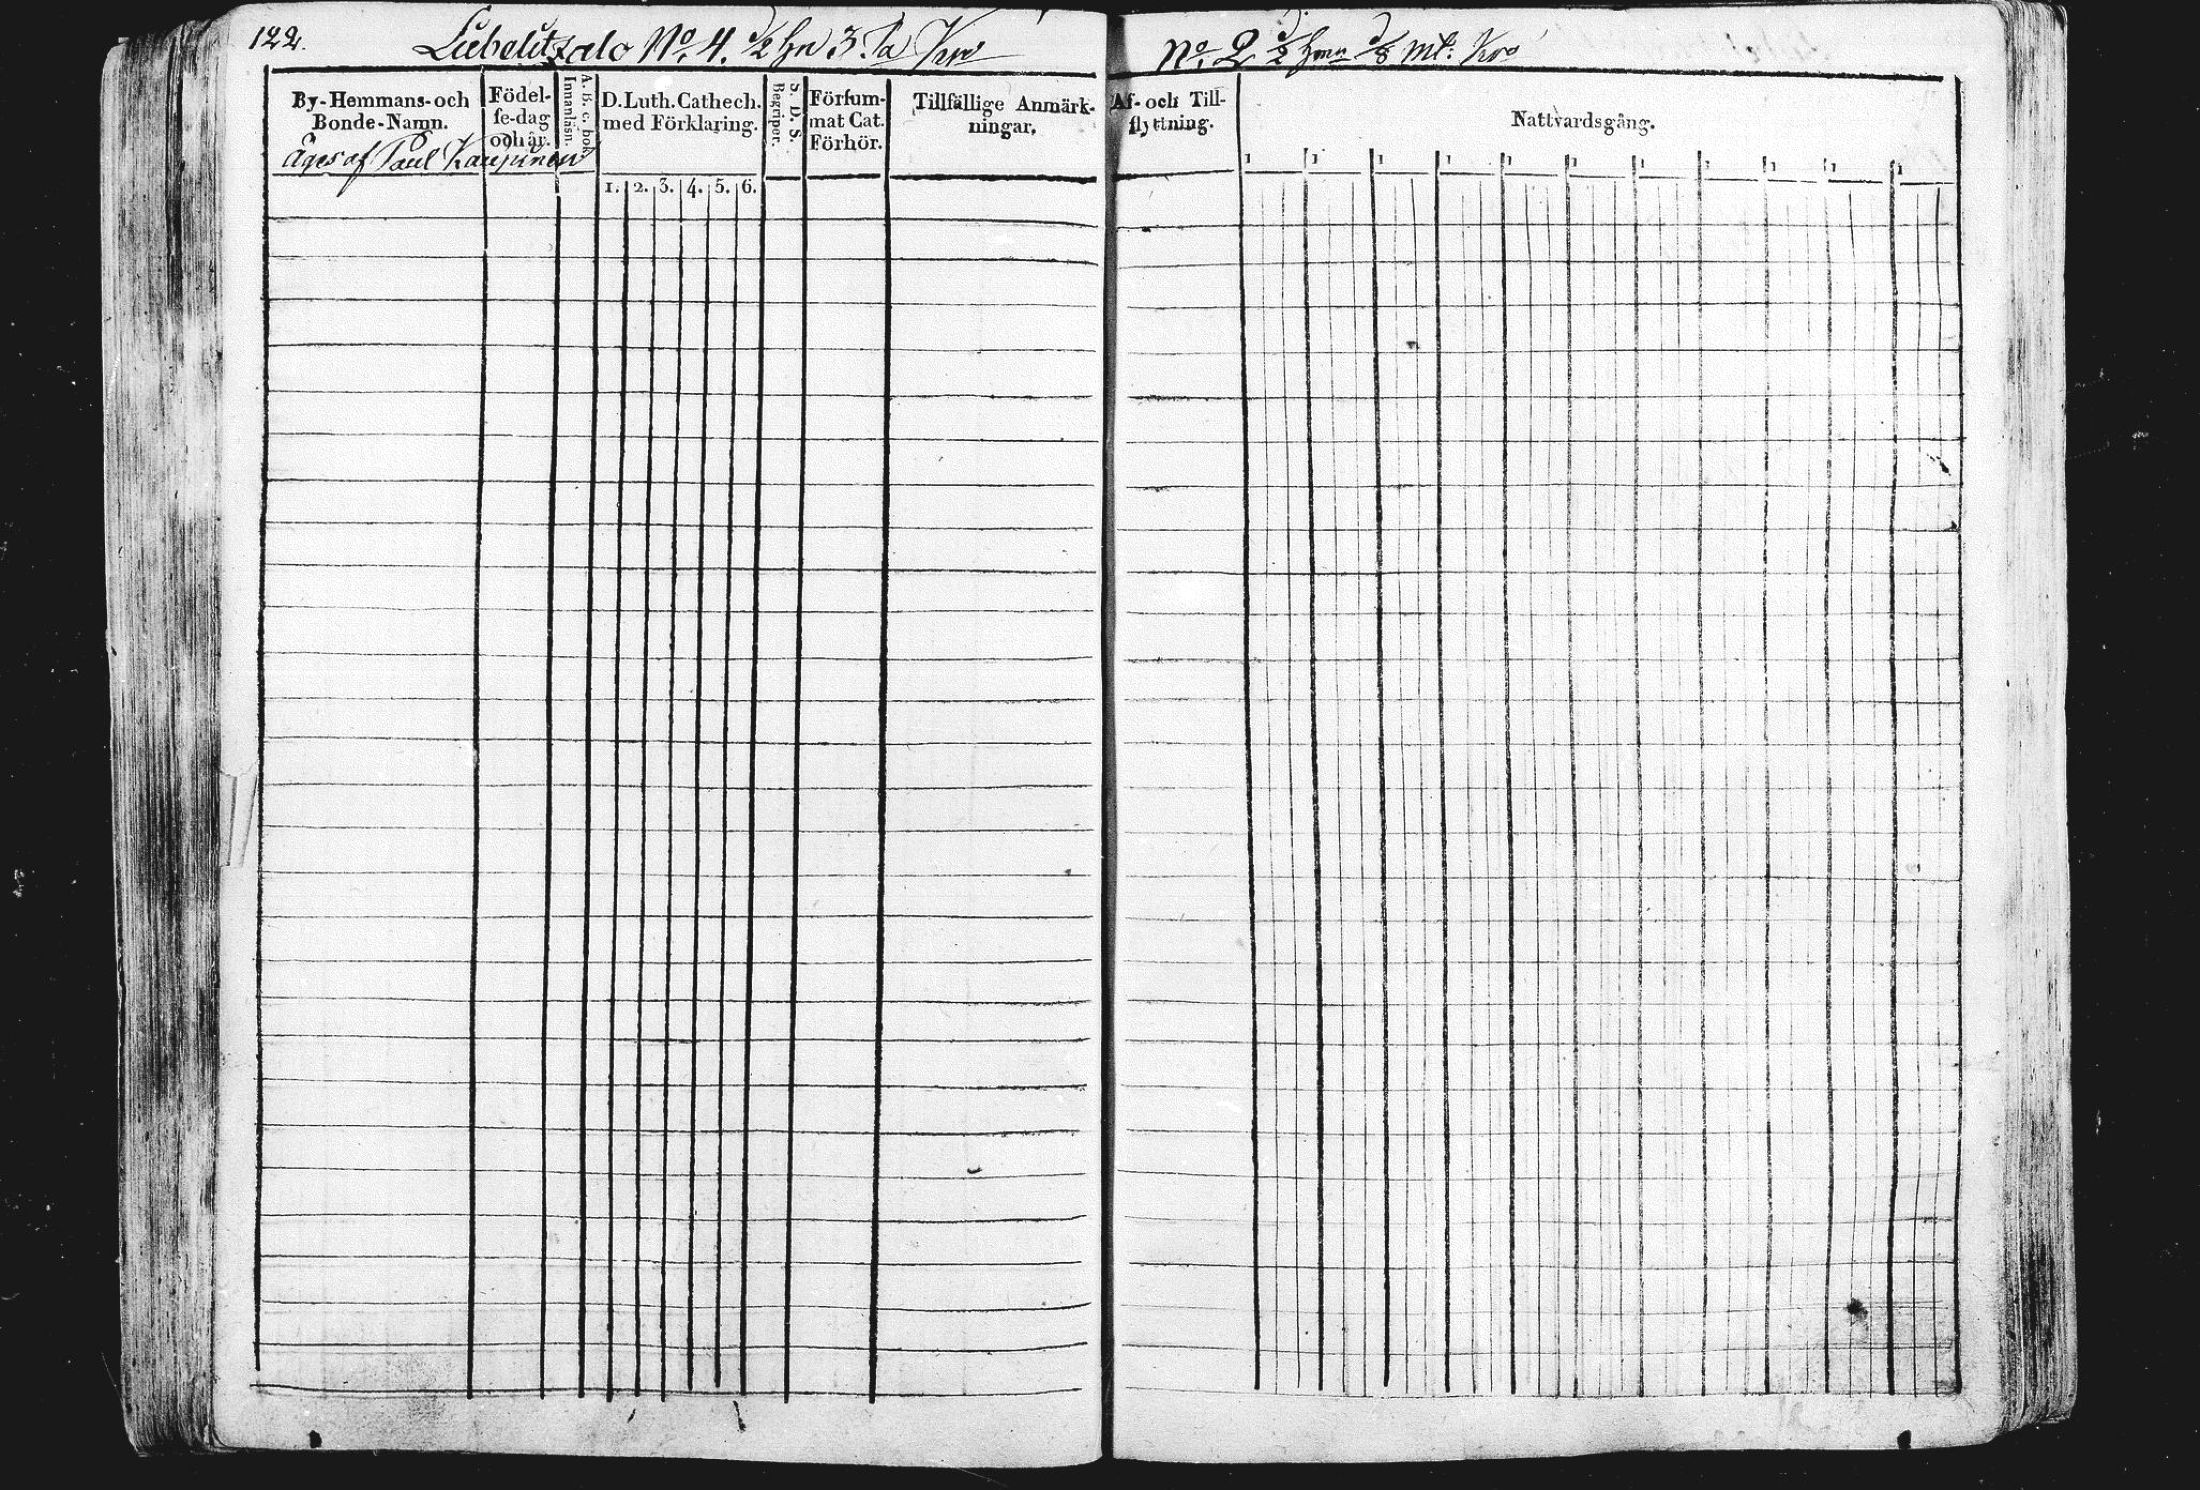 122.
Liebelitzalo No. 4. 1/2 hn 3. Ta Kro
No 2 1/2 hmn 1/8 mt: Kro
By-Hemmans-och
Bonde-Namn.
Äges af Paul Kaupinen
Födel-
se-dag
och år.
A. B. C. bok
Innanläsn.
D. Luth. Cathech.
med Förklaring.
1. 2. 3. 4. 5. 6.
S. D. S.
Begriper.
Försum-
mat Cat.
Förhör.
Tillfällige Anmärk-
ningar.
Af- och Till-
flyttning.
Nattvardsgång.
1 1 1 1 1 1 1 1 1 1 1